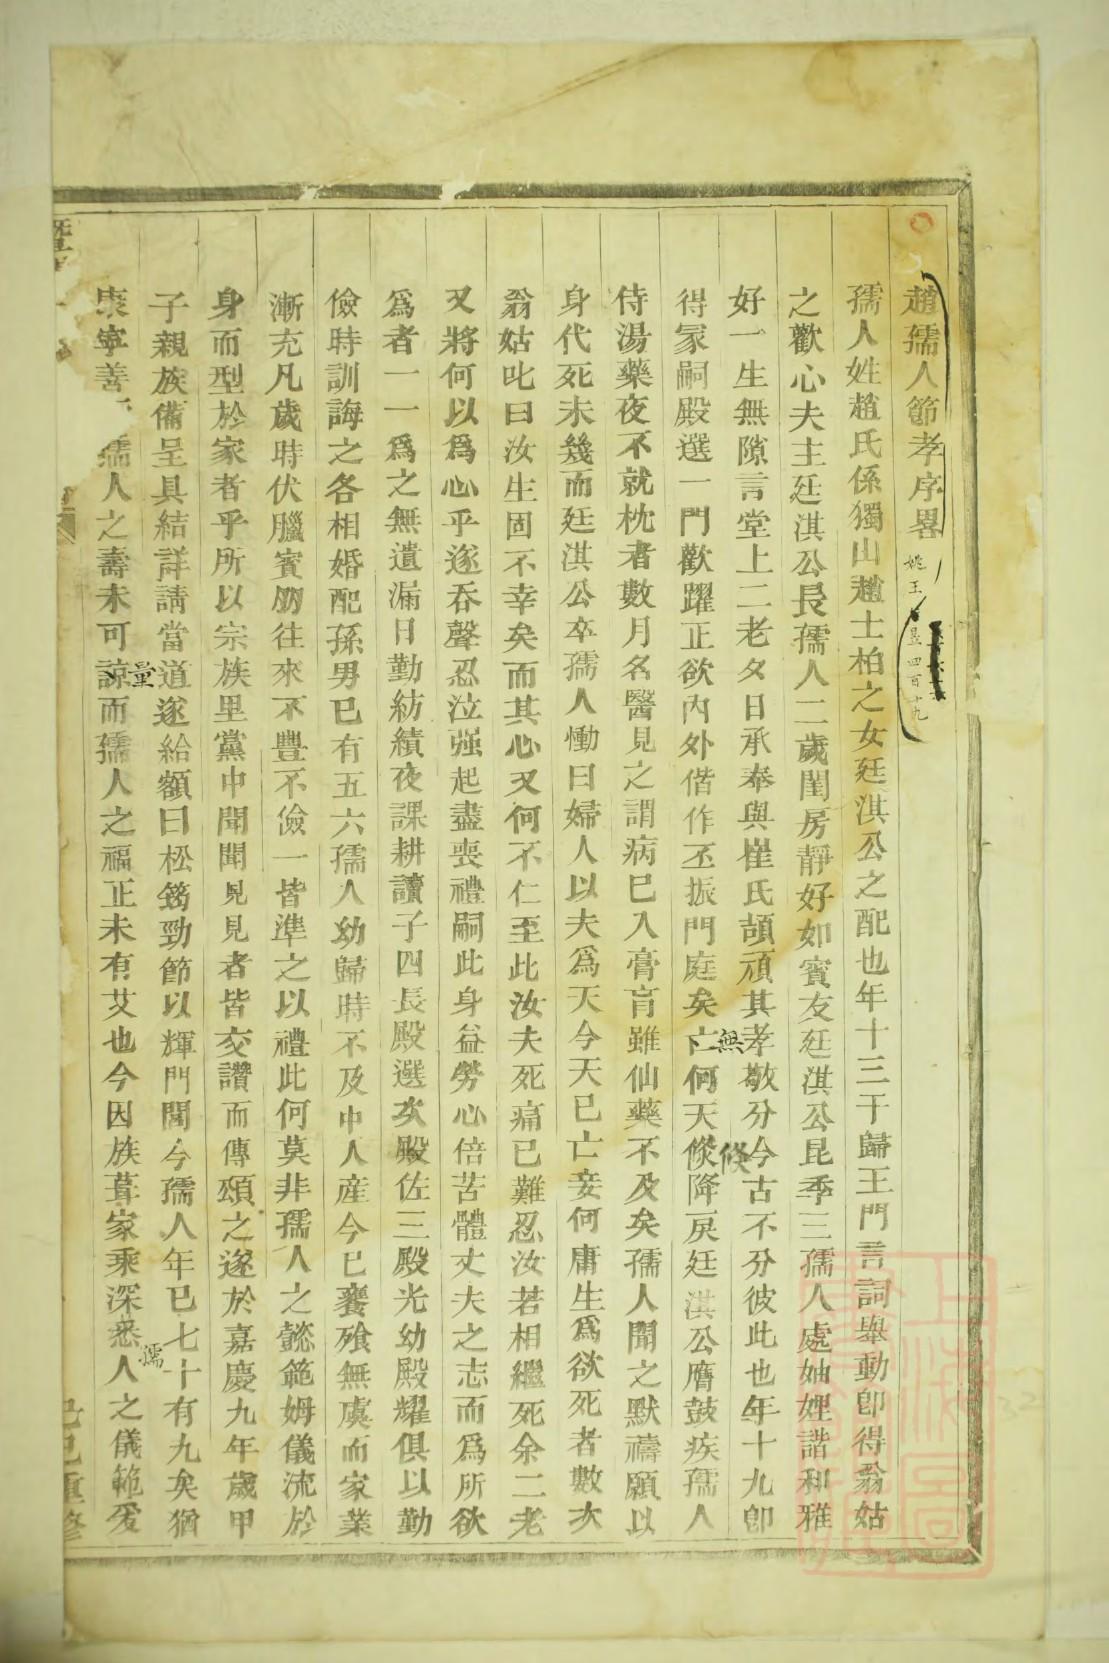 趙孺人節孝序畧
姚王 昱四百十九
孺人姓趙氏係獨山趙士柏之女廷淇公之配也年十三于歸王門言詞舉動卽得翁姑
之歡心夫主廷淇公長孺人二歲閨房靜好如賓友廷淇公昆季三孺人處妯娌諧和雅
好一生無隙言堂上二老夂日承奉與崔氏頡頏其孝敬分今古不分彼此也年十九卽
無
倐
得冢嗣殿選一門歡躍正欲內外偕作丕振門庭矣亡何天倐降戾廷淇公膺鼓疾孺人
侍湯藥夜不就枕者數月名醫見之謂病已入膏肓雖仙藥不及矣孺人聞之默禱願以
身代死未幾而廷淇公卒孺人慟曰婦人以夫爲天今天已亡妾何庸生爲欲死者數次
翁姑叱曰汝生固不幸矣而其心又何不仁至此汝夫死痛已難忍汝若相繼死余二老
又將何以爲心乎遂吞聲忍泣强起盡喪禮嗣此身益勞心倍苦體丈夫之志而爲所欲
爲者一一爲之無遺漏日勤紡績夜課耕讀子四長殿選次殿佐三殿光幼殿耀俱以勤
儉時訓誨之各相婚配孫男已有五六孺人幼歸時不及中人産今已饔飱無虞而家業
漸充凡歲時伏臘賓朋往來不豐不儉一皆準之以禮此何莫非孺人之懿範姆儀流於
身而型於家者乎所以宗族里黨中聞聞見見者皆交讚而傳頌之遂於嘉慶九年歲甲
子親族備呈具結詳請當道遂給額曰松筠勁節以輝門閭今孺人年已七十有九矣猶
量
孺
康寧善 孺人之壽未可諒而孺人之福正未有艾也今因族葺家乘深悉人之儀範爰
己巳重修
上海圖書館藏